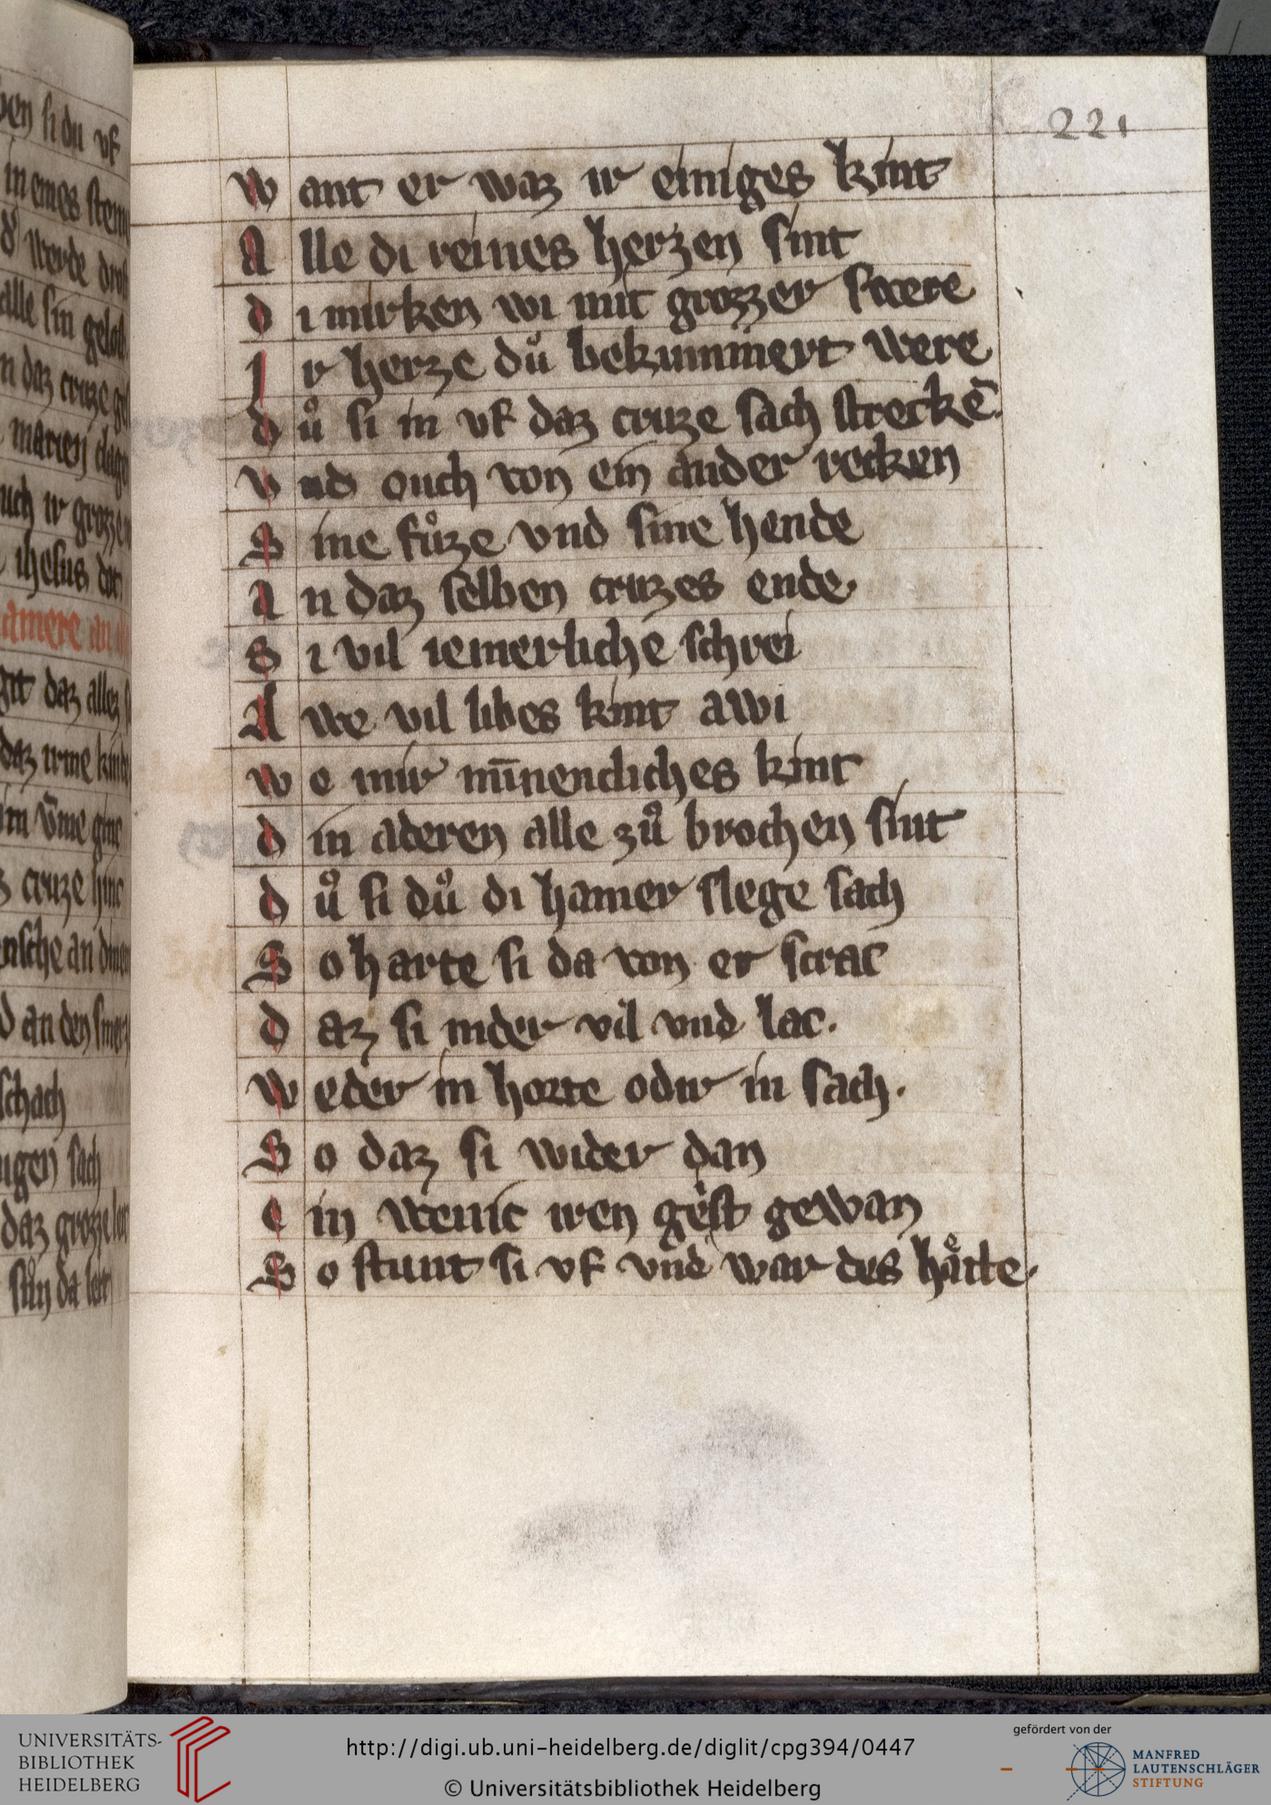 221
want er waz ir einiges kint
Alle di reines herzen sint
di mirken wi mit grozzer swere
Ir herze dů bekummert were
dů si in vf daz cruze sach streckē
vnd ouch von ein ander recken
Sine fůze vnd sine hende
an daz selben cruzes ende
Si vil iemerliche schrei
Awe vil libes kint awi
we mir mīnencliches kint
din aderen alle zů brochen sint
dů si dů di hamer slege sach
So harte si da von er scrac
daz si nider vil vnd lac.
weder in horte odir in sach.
So daz si wider dan
ein wenic iren geist gewan
So stunt si vf vnd war des haͤtte.
ben si du vf
in eines
werde
alle sin
n daz cruze
marien
uch ir grozze
ihesus
amere an
daz allez
daz irme
cruze
schach
igen sach
daz grozze
da leit
UNIVERSITÄTS-
BIBLIOTHEK
HEIDELBERG
http://digi.ub.uni-heidelberg.de/diglit/cpg394/0447
© Universitätsbibliothek Heidelberg
gefördert von der
MANFRED
LAUTENSCHLÄGER
STIFTUNG